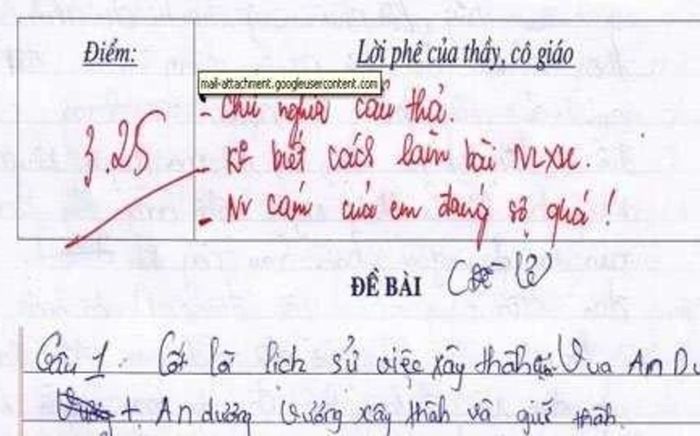 Điểm:
Lời phê của thầy, cô giáo
mail-attachment.googleusercontent.com
3.25
- Chữ nghĩa cẩu thả.
- Ko biết cách làm bài NLXH.
- NV cấm của em đáng sợ quá!
ĐỀ BÀI
Câu 1. Cốt lõi lịch sử việc xây thành Vua An Dư
+ An dương Vương xây thành và giữ thành